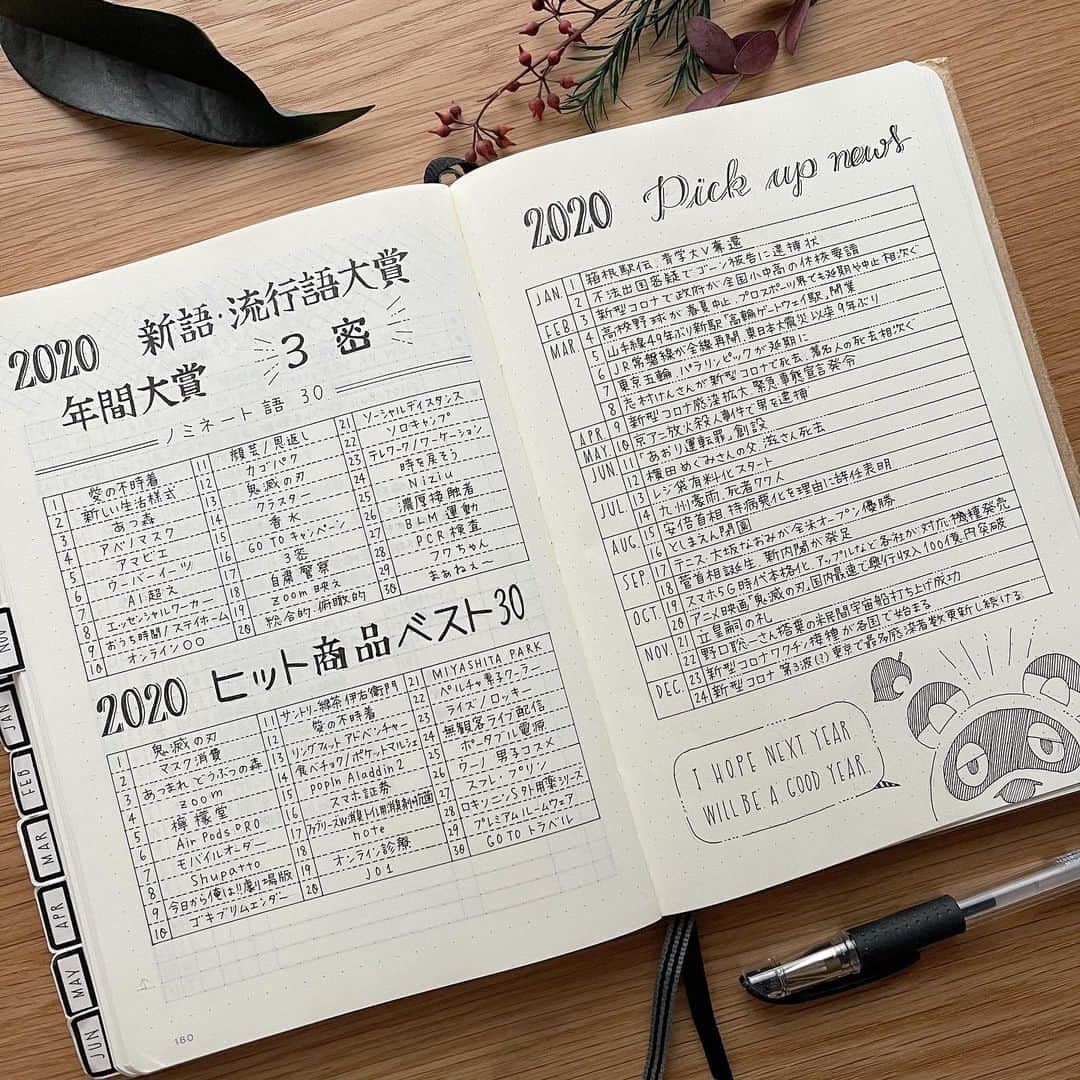 2020 新語・流行語大賞
年間大賞 3密
ノミネート語30
1 愛の不時着
2 新しい生活様式
3 あつ森
4 アベノマスク
5 アマビエ
6 ウーバーイーツ
7 AI超え
8 エッセンシャルワーカー
9 おうち時間/ステイホーム
10 オンライン○○
11 顔芸/恩返し
12 カゴパク
13 鬼滅の刃
14 クラスター
15 香水
16 GO TOキャンペーン
17 3密
18 自粛警察
19 zoom映え
20 総合的、俯瞰的
21 ソーシャルディスタンス
22 ソロキャンプ
23 テレワーク/ワーケーション
24 時を戻そう
25 NiziU
26 濃厚接触者
27 BLM運動
28 PCR検査
29 フワちゃん
30 まぁねぇ〜
2020 ヒット商品ベスト30
1 鬼滅の刃
2 マスク消費
3 あつまれどうぶつの森
4 zoom
5 檸檬堂
6 AirPods PRO
7 モバイルオーダー
8 Shupatto
9 今日から俺は!!劇場版
10 ゴキブリムエンダー
11 サントリー緑茶 伊右衛門
12 愛の不時着
13 リングフィットアドベンチャー
14 食べチョク/ポケットマルシェ
15 popIn Aladdin2
16 スマホ証券
17 ファブリーズW消臭トイレ用消臭剤+抗菌
18 note
19 オンライン診療
20 JO1
21 MIYASHITA PARK
22 ペルチャ素子クーラー
23 ライズ/ロッキー
24 無観客ライブ配信
25 ポータブル電源
26 ウーノ 男子コスメ
27 スフレ・プリン
28 ロキソニンS外用薬シリーズ
29 プレミアムルームウェア
30 GO TO トラベル
180
NOV
JAN
FEB
MAR
APR
MAY
JUN
2020 Pick up news
JAN. 1 箱根駅伝、青学大V奪還
2 不法出国容疑でゴーン被告に逮捕状
FEB. 3 新型コロナで政府が全国小中高の休校要請
MAR. 4 高校野球が春夏中止、プロスポーツ界でも延期や中止相次ぐ
5 山手線49年ぶり新駅「高輪ゲートウェイ駅」開業
6 JR常磐線が全線再開、東日本大震災以来9年ぶり
7 東京五輪、パラリンピックが延期に
8 志村けんさんが新型コロナで死去、著名人の死去相次ぐ
APR. 9 新型コロナ感染拡大、緊急事態宣言発令
MAY. 10 京アニ放火殺人事件で男を逮捕
JUN. 11 「あおり運転罪」創設
12 横田めぐみさんの父、滋さん死去
JUL. 13 レジ袋有料化スタート
14 九州豪雨、死者77人
AUG. 15 安倍首相、持病悪化を理由に辞任表明
16 としまえん閉園
SEP. 17 テニス、大坂なおみが全米オープン優勝
18 菅首相誕生、新内閣が発足
OCT. 19 スマホ5G時代本格化、アップルなど各社が対応機種発売
20 アニメ映画「鬼滅の刃」国内最速で興行収入100億円突破
NOV. 21 立皇嗣の礼
22 野口聡一さん搭乗の米民間宇宙船打ち上げ成功
DEC. 23 新型コロナワクチン接種が各国で始まる
24 新型コロナ第3波(?)東京で最多感染者数更新し続ける
I HOPE NEXT YEAR
WILL BE A GOOD YEAR